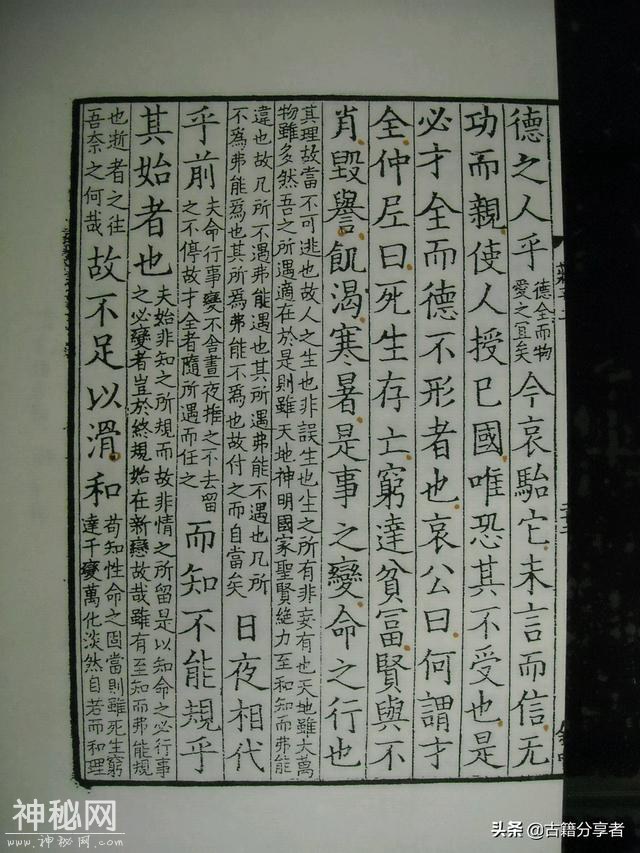 德之人乎德全而物愛之宜矣今哀駘它未言而信无
功而親使人授已國唯恐其不受也是
必才全而德不形者也哀公曰何謂才
全仲尼曰死生存亡窮達貧富賢與不
肖毀譽飢渴寒暑是事之變命之行也
其理故當不可逃也故人之生也非誤生也生之所有非妄有也天地雖大萬
物雖多然吾之所遇適在於是則雖天地神明國家聖賢絶力至和知而弗能
違也故凡所不遇弗能遇也其所遇弗能不遇也凡所
不為弗能為也其所為弗能不為也故付之而自當矣日夜相代
乎前夫命行事變不舍晝夜推之不去留之不停故才全者隨所遇而任之而知不能規乎
其始者也夫始非知之所規而故非情之所留是以知命之必行事之必變者豈於終規始在新戀故哉雖有至知而弗能規
也逝者之往吾奈之何哉故不足以滑和苟知性命之固當則雖死生窮達千變萬化淡然自若而和理
神秘网
www.神秘网.com
头条 @古籍分享者